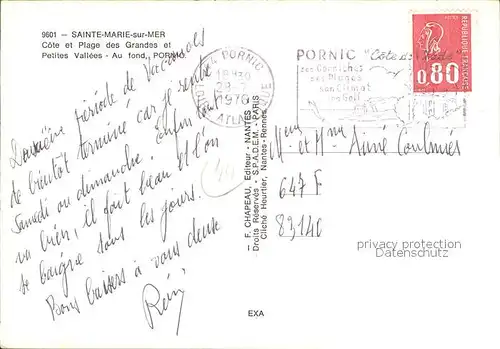 9601 - SAINTE-MARIE-sur-MER
Côte et Plage des Grandes et
Petites Vallées - Au fond, PORNIC
Deuxième période de vacances
de bientôt terminé car je rentre
Samedi ou dimanche. Enfin tout
va bien, il fait beau et l'on
se baigne tous les jours.
Bons baisers à vous deux
Rémi
— F. CHAPEAU, Editeur - NANTES
Droits Réservés - S.P.A.D.E.M. - PARIS
Cliché Heurtier, Nantes-Rennes
EXA
44 PORNIC
18H30
1976
PORNIC "Côte de Jade"
ses Corniches
ses Plages
son Climat
son Golf
REPUBLIQUE FRANÇAISE
0,80
et Mme
647 F
83140
privacy protection
Datenschutz